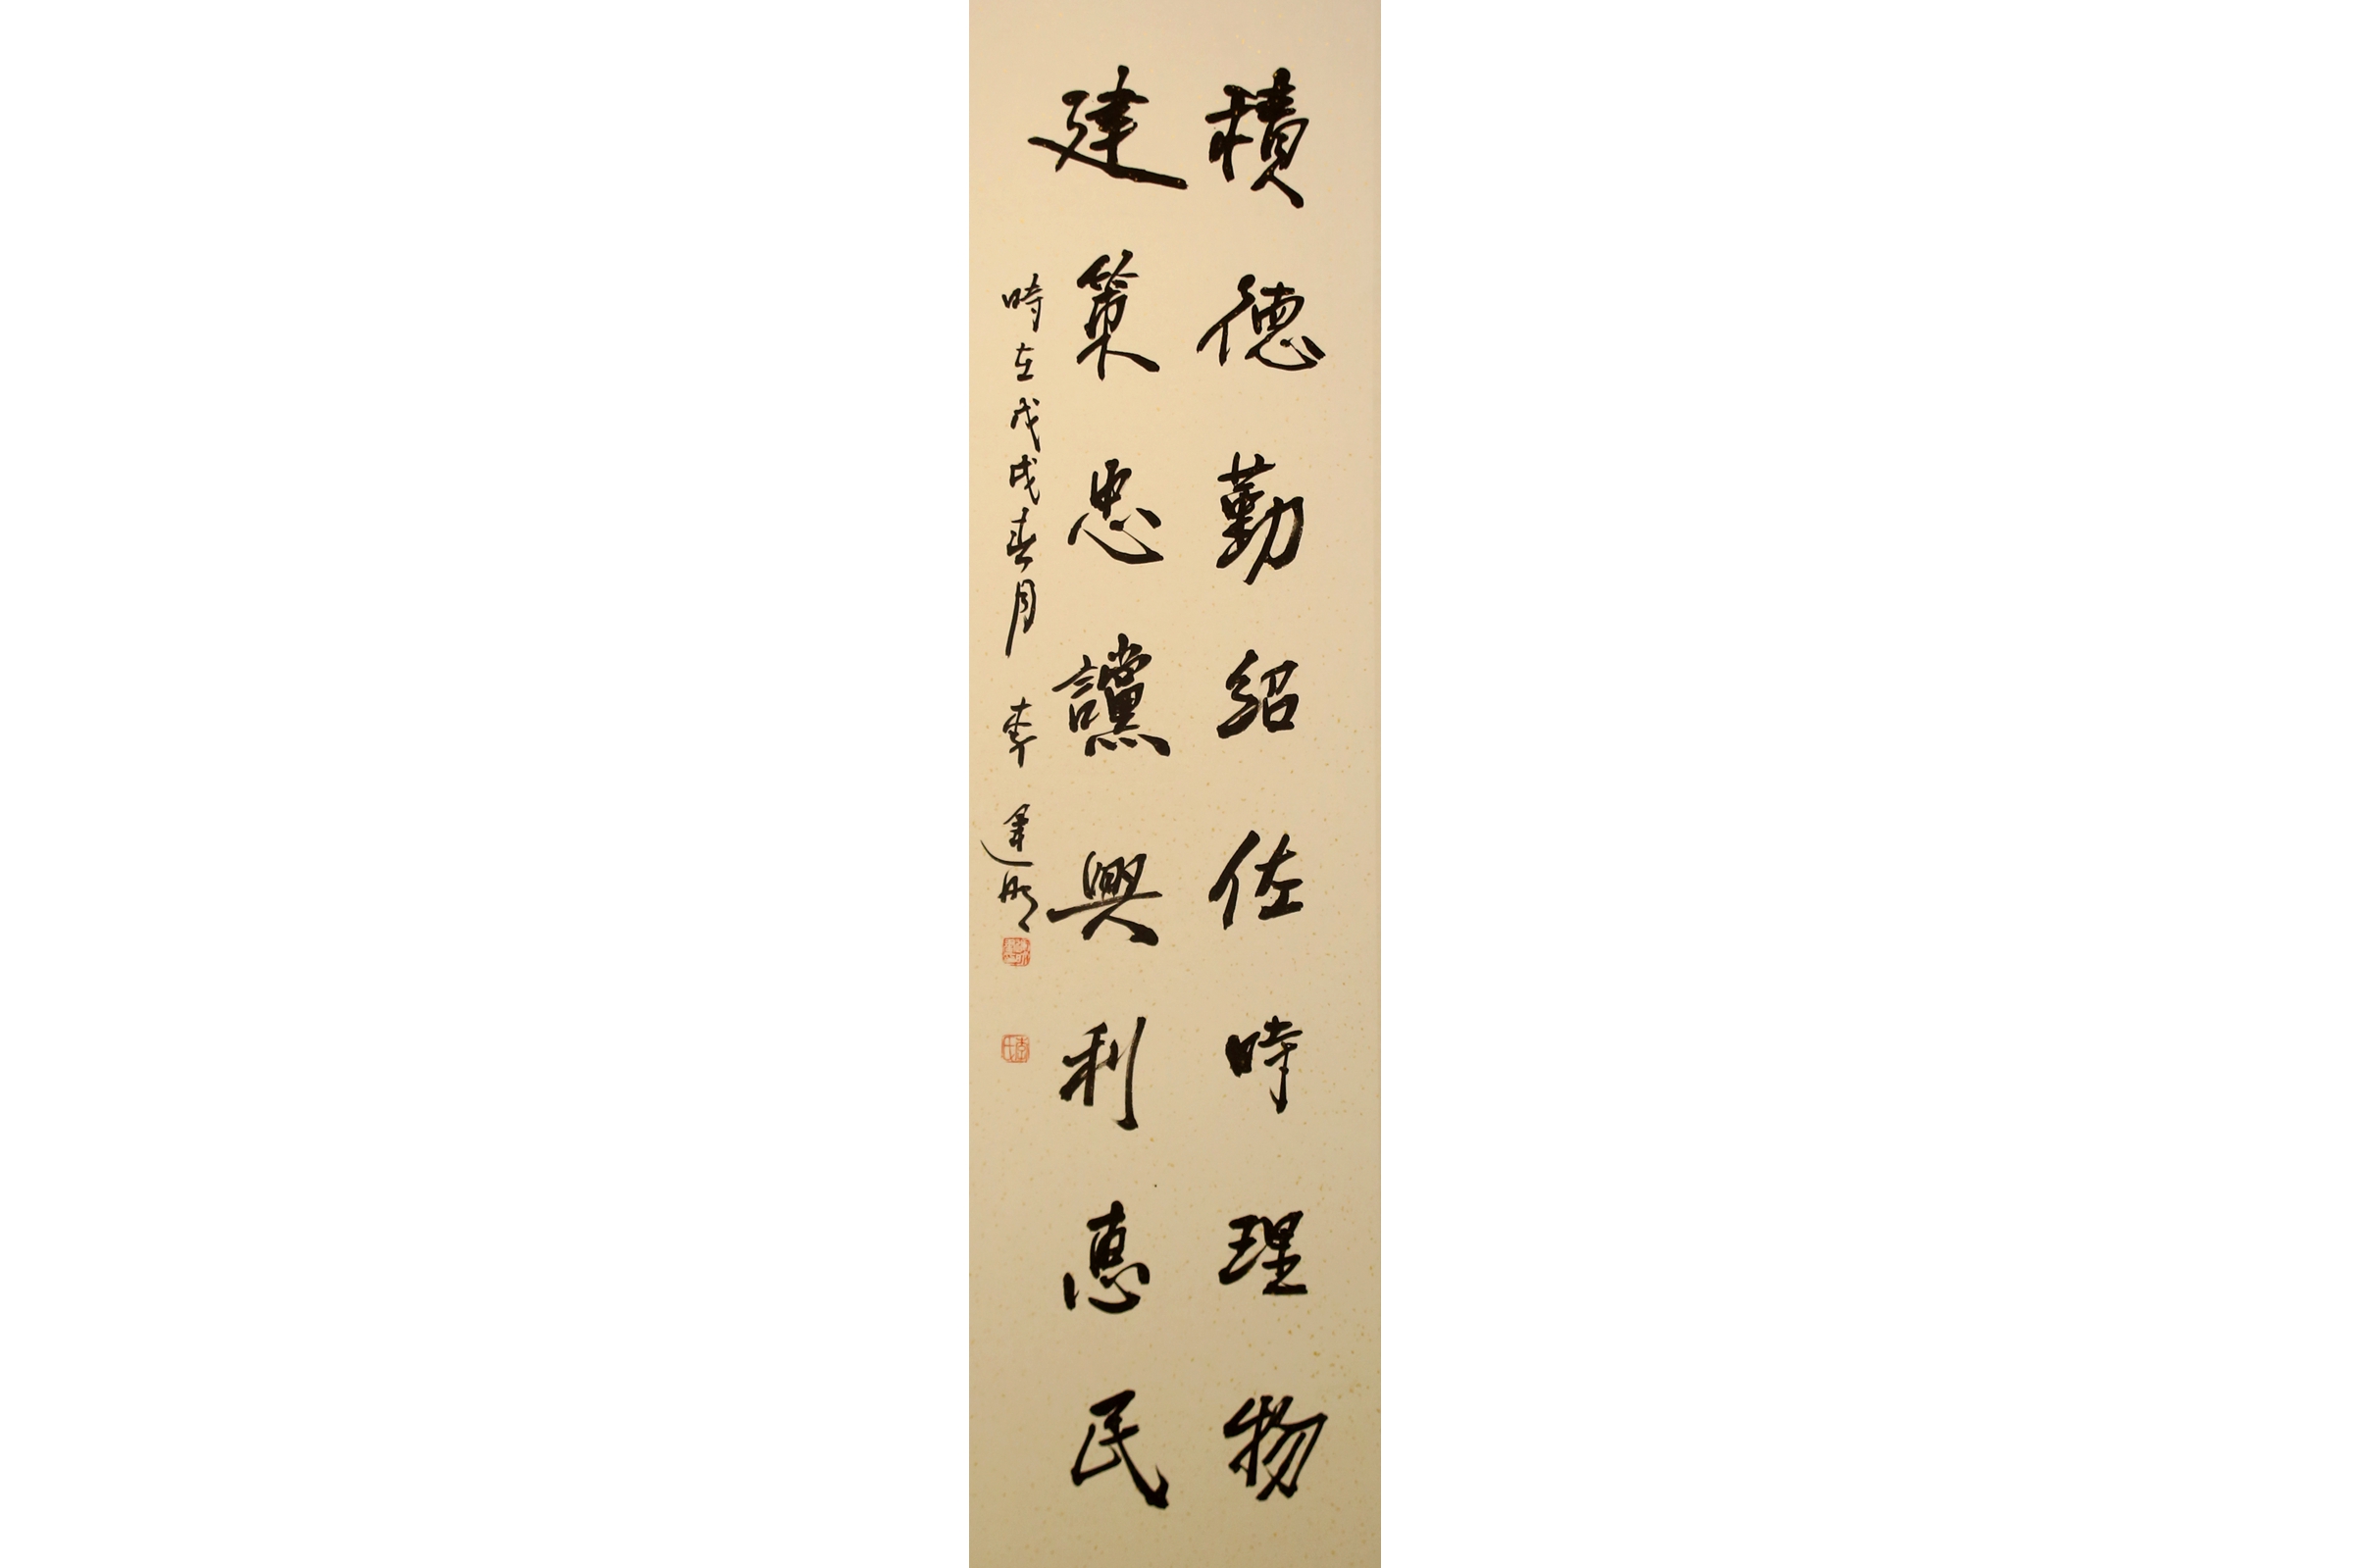 積德勤紹佐時理物
建策忠讜興利惠民
時在戊戌春月 李建明